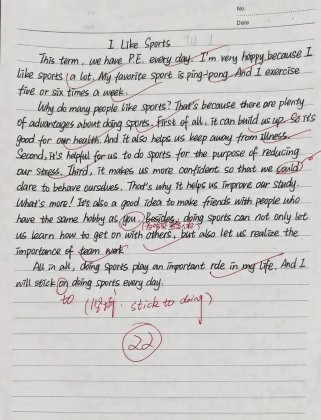 No.
Date
I Like Sports
This term, we have P.E. every day. I'm very happy because I
like sports a lot. My favorite sport is ping-pong. And I exercise
five or six times a week.
Why do many people like sports? That's because there are plenty
of advantages about doing sports. First of all, it can build us up. So it's
good for our health. And it also helps us keep away from illness.
Second, it's helpful for us to do sports for the purpose of reducing
our stress. Third, it makes us more confident so that we could
dare to behave ourselves. That's why it helps us improve our study.
What's more! It's also a good idea to make friends with people who
have the same hobby as you. Besides, doing sports can not only let
us learn how to get on with others, but also let us realize the
importance of team work.
All in all, doing sports play an important role in my life. And I
will stick on doing sports every day.
to (坚持. stick to doing)
22